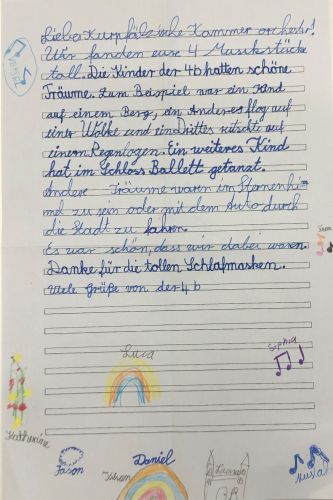 Liebes Kurpfälzische Kammerorchester!
Wir fanden eure 4 Musikstücke
toll. Die Kinder der 4b hatten schöne
Träume. Zum Beispiel war ein Kind
auf einem Berg, ein Anderes flog auf
einer Wolke und ein drittes rutschte auf
einem Regenbogen. Ein weiteres Kind
hat im Schloss Ballett getanzt.
Andere Träume waren im Sternenhi-
mel zu sein oder mit dem Auto durch
die Stadt zu fahren.
Es war schön, dass wir dabei waren.
Danke für die tollen Schlafmasken.
Viele Grüße von der 4b
Luca
Sophia
Katharina
Jason
Daniel